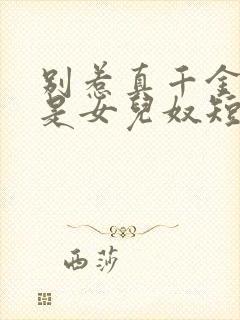 别惹真千金
是女兒奴短
西莎